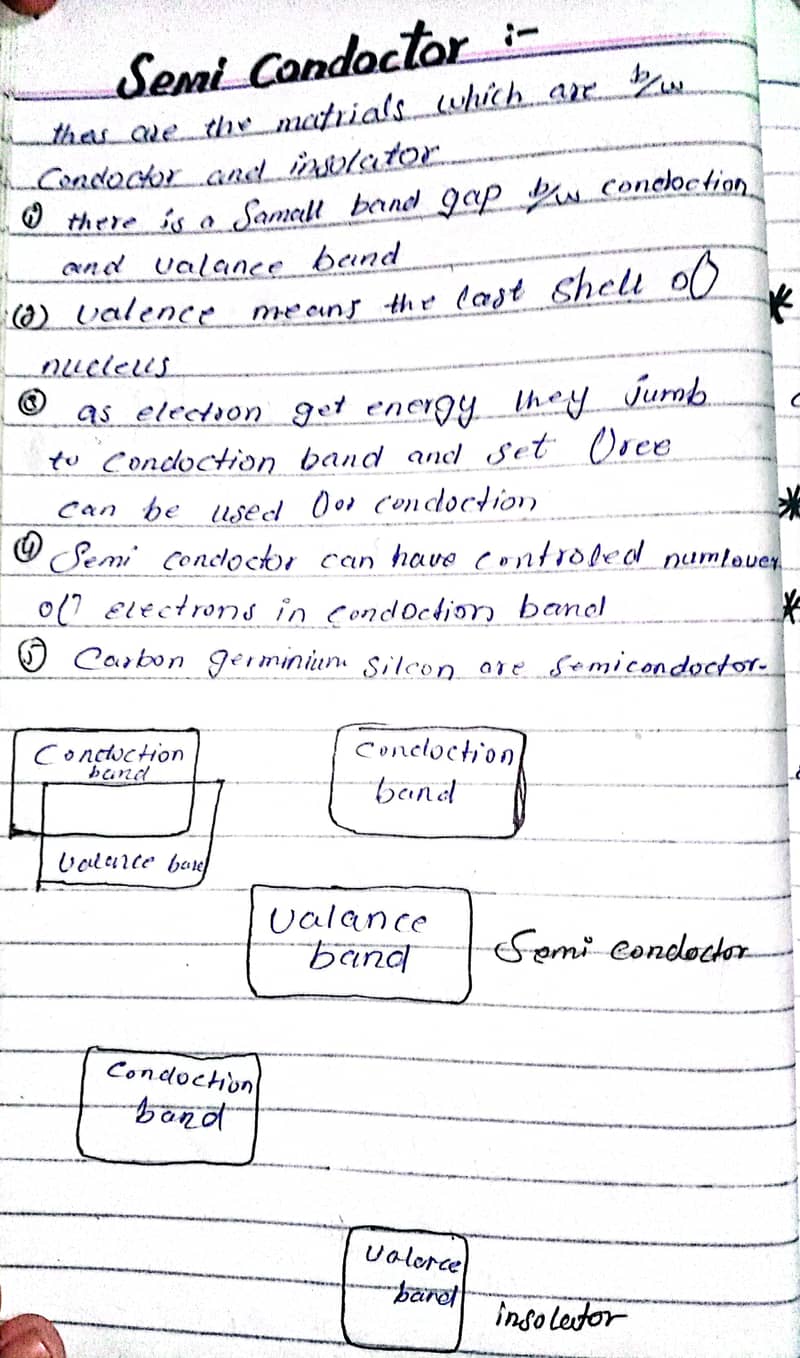 Semi Condoctor :-
thes are the matrials which are b/w
Condoctor and insolator
(1) there is a Samall band gap b/w condoction
and valance band
(2) valence means the last shell of
nucleus
(3) as election get energy they jumb
to condoction band and set free
can be used for condoction
(4) Semi condoctor can have controled numbver
of electrons in condoction band
(5) Carbon germinium silcon are semicondoctor.
Conduction
band
Valance band
Condoction
band
Valance
band
Semi condoctor
Condoction
band
Valence
band
insolator